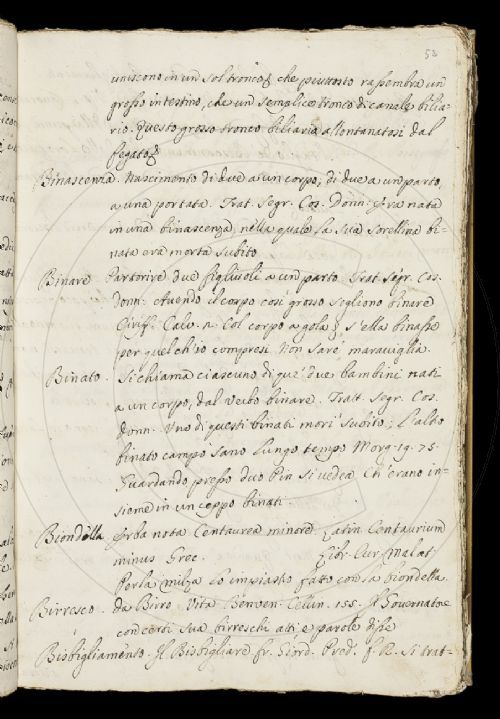 53
uniscono in un sol tronco, che piuttosto rassembra un
grosso intestino, che un semplice tronco di canale bilia-
rio. Questo grosso tronco biliario allontanatosi dal
fegato
Binascenza. Nascimento di due a un corpo, di due a un parto,
a una portata. Trat. Segr. Cos. Donn: Era nata
in una binascenza, nella quale la sua sorellina bi-
nata era morta subito
Binare. Partorire due figliuoli a un parto. Trat. Segr. Cos.
Donn: Avendo il corpo così grosso sogliono binare
Ciriff. Calv. n: Col corpo a gola; s'ella binasse
per quel ch'io compresi Non sarè maraviglia.
Binato. Si chiama ciascuno di que' due bambini nati
a un corpo, dal verbo binare. Tratt. Segr. Cos.
donn: Uno di questi binati morì subito; L'altro
binato campò sano lungo tempo Morg. 19. 75.
Guardando presso duo Pin si vedea Ch'erano in-
sieme in un ceppo binati.
Biondella Erba nota Centaurea minore. Latin. Centaurium
minus Grec. Libr. Cur. Malat:
Per la milza lo impiastro fatto con la biondella.
Birresco. da Birro. Vita Benven: Cellin. 155. Il Governatore
con certi sua birreschi atti e parole disse
Bisbigliamento. Il Bisbigliare fr. Giord. Pred. f. R. Si trat-